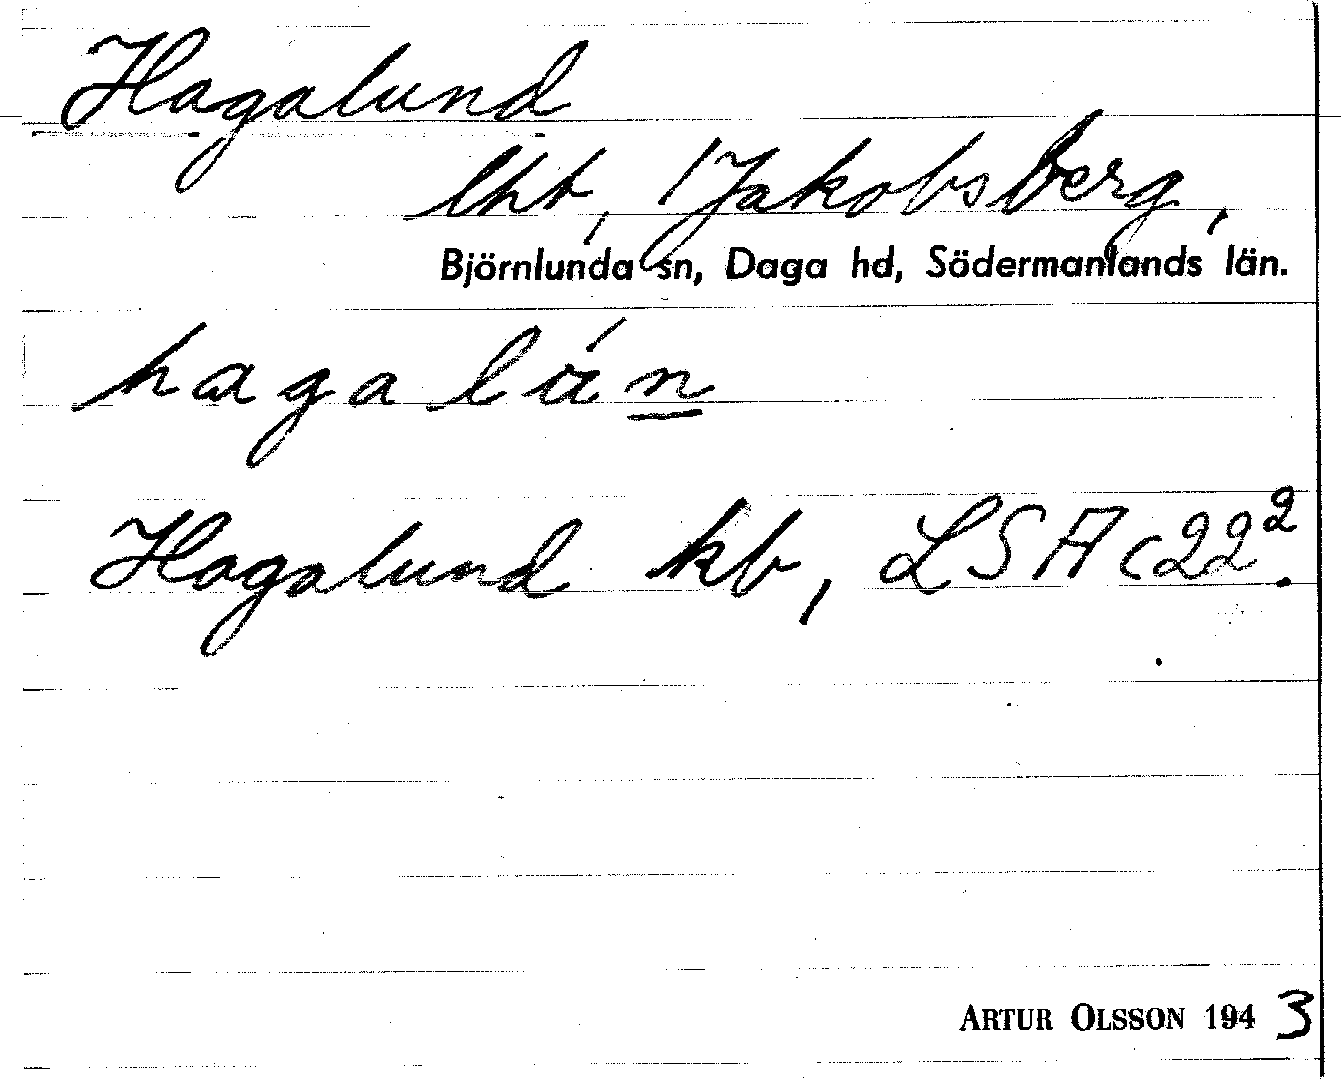 Hagalund
lht, 1 Jakobsberg,
Björnlunda sn, Daga hd, Södermanlands län.
hagalán
Hagalund kb, LSA C22².
ARTUR OLSSON 1943